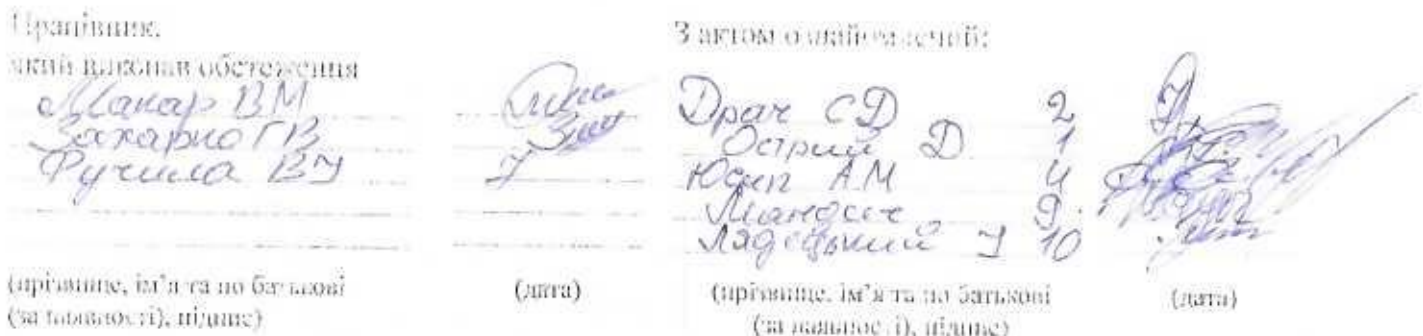 Працівник,
який виконав обстеження
Макар ВМ
Захарко ГВ
Фучила ВЙ
(прізвище, ім'я та по батькові
(за наявності), підпис)
(дата)
З актом ознайомлений:
Драч СД 2
Острий Д 1
Юсип А.М 4
9.
Лядецький Й 10
(прізвище, ім'я та по батькові
(за наявності), підпис)
(дата)